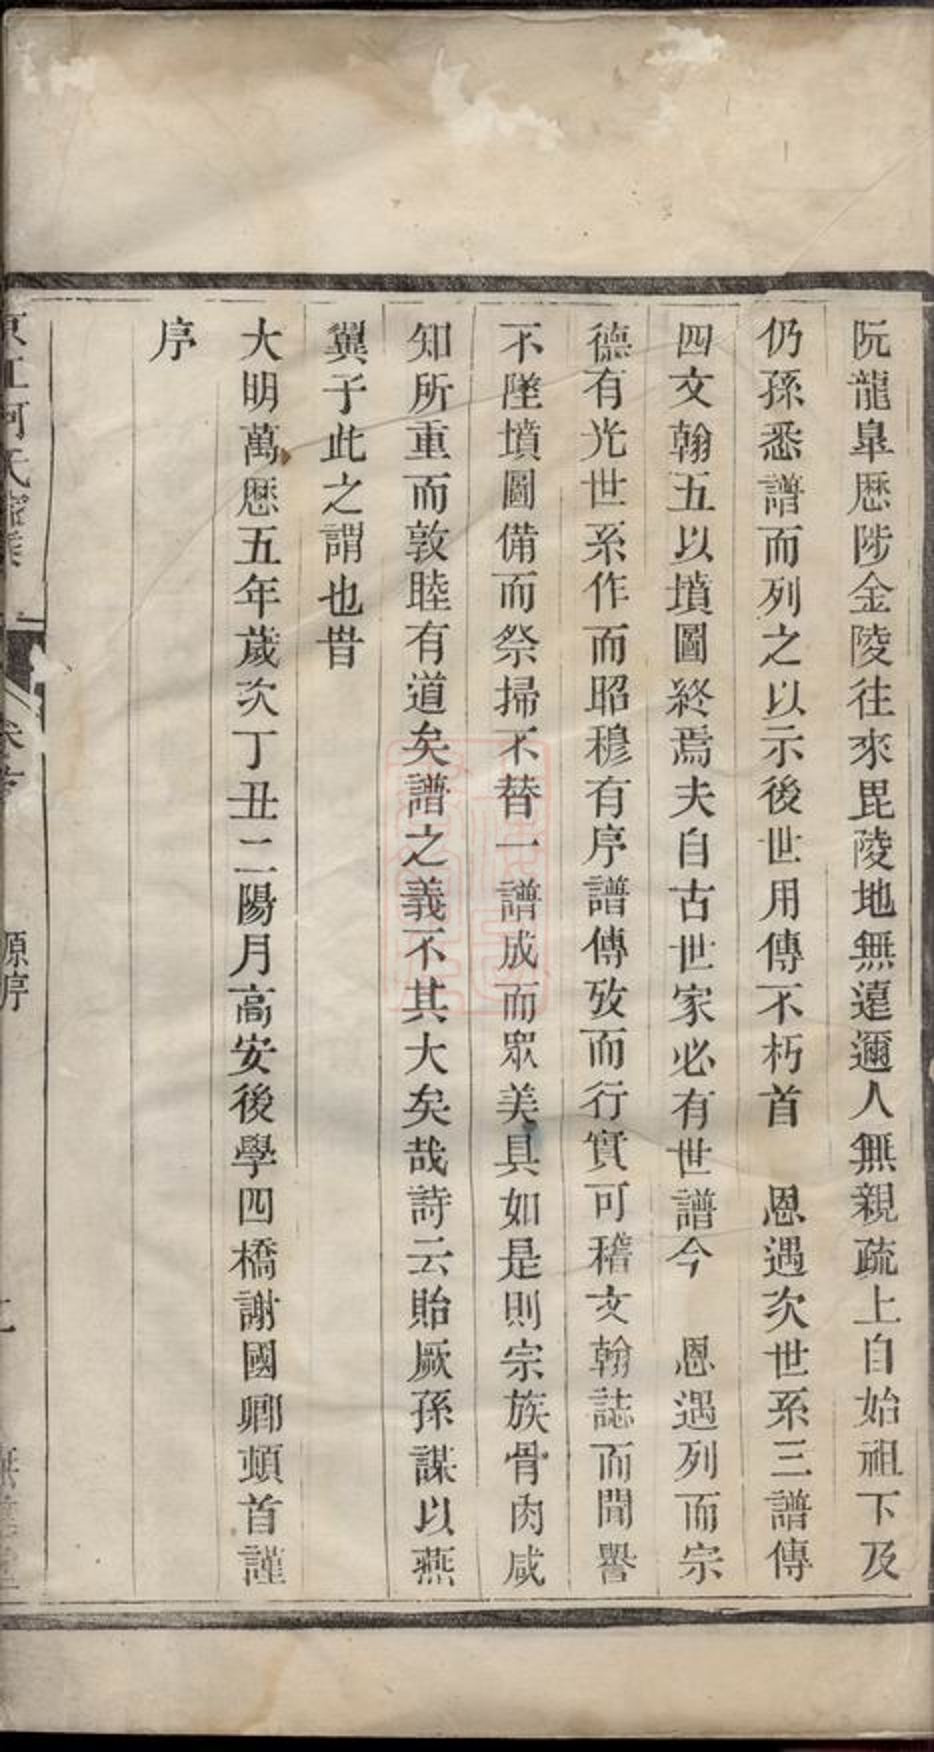 阮龍臯歷陟金陵往來毘陵地無遠邇人無親疏上自始祖下及
仍孫悉譜而列之以示後世用傳不朽首　恩遇次世系三譜傳
四文翰五以墳圖終焉夫自古世家必有世譜今　恩遇列而宗
德有光世系作而昭穆有序譜傳攷而行實可稽文翰誌而聞譽
不墜墳圖備而祭掃不替一譜成而眾美具如是則宗族骨肉咸
知所重而敦睦有道矣譜之義不其大矣哉詩云貽厥孫謀以燕
翼子此之謂也旹
大明萬厯五年歲次丁丑二陽月高安後學四橋謝國卿頓首謹
序
源序